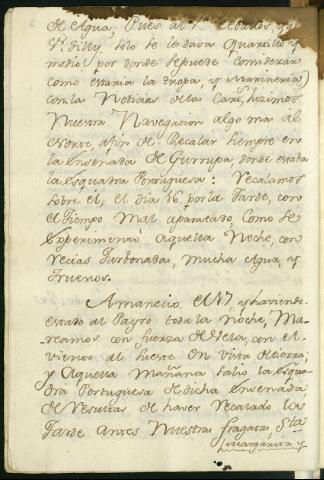 de Agua, Pues al Sr. Cevallos, y al
Sr. Tilly, solo se le dava Quartillo y
medio por donde se puede considerar
como estaria la tropa, y Marineria)
con la Noticias de la Cari, hizimos
Nuestra Navegacion algo mas al
Norte, afin de Recalar siempre en
la Ensenada de Gurrupa, donde estava
la Esquadra Portuguesa: Recalamos
sobre el, el dia 16 por la Tarde, con
el Tiempo Mal aparatado, como se
Experimento Aquella Noche, con
recias Turbonadas, mucha Agua, y
Truenos.
Amanecio el 17 y haviendo
estado al Payro toda la noche, Ma-
reamos con fuerza de Vela, con el
viento al fueste en vista de tierra,
y Aquella Mañana salio la Esqua-
dra Portuguesa de dicha Ensenada,
de Resultas de haver Recalado la
Tarde Antes Nuestra fragata Sta.
Margarita y